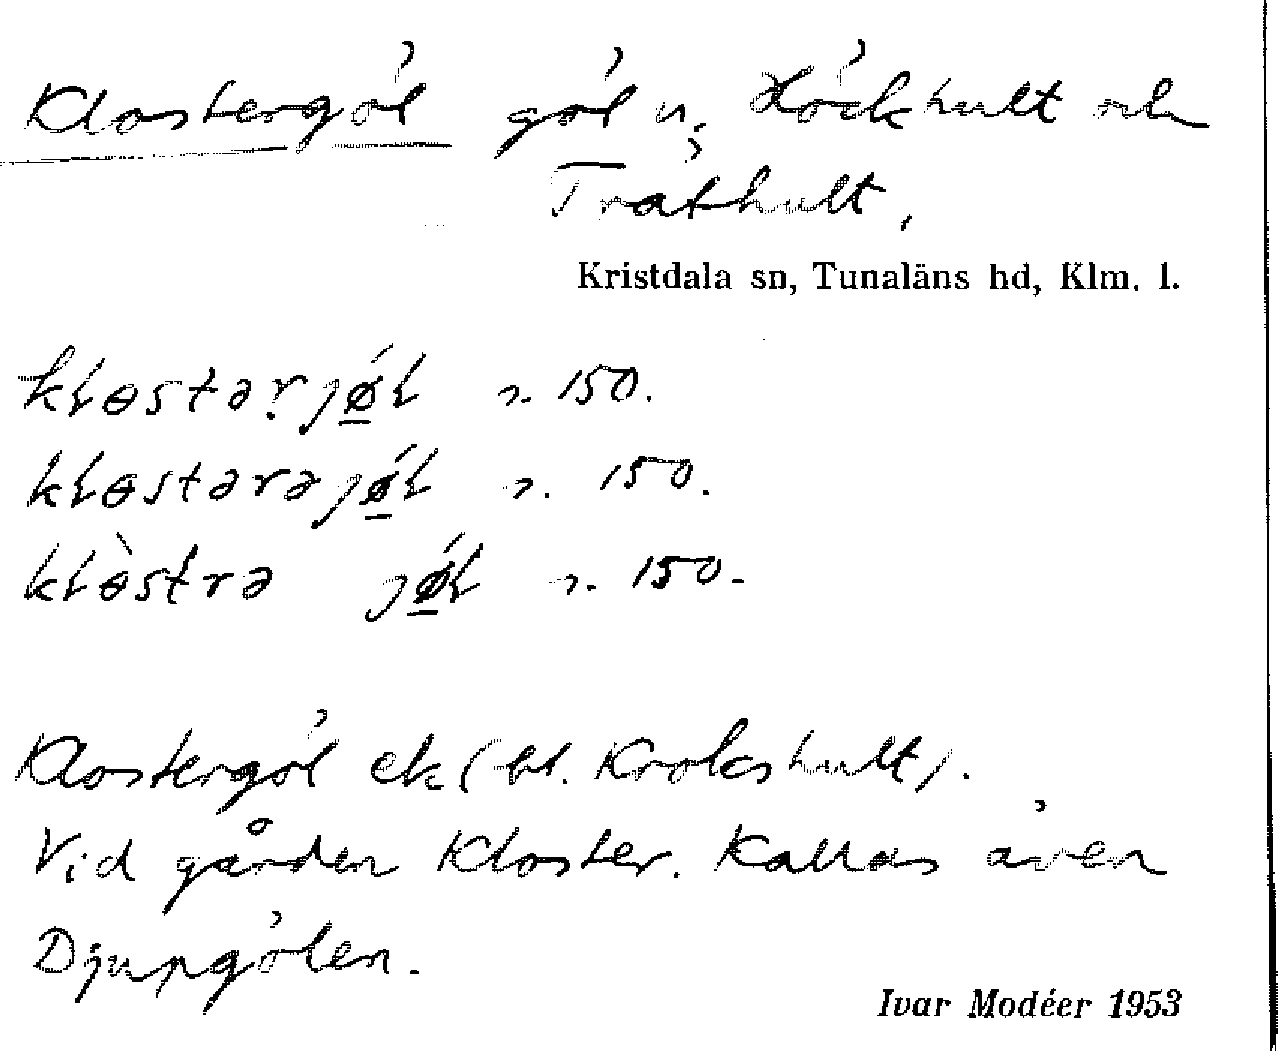 Klostergöl göl u. Höckhult och
Träthult.
Kristdala sn, Tunaläns hd, Klm. l.
kłɵstərjǿ̱ł n. 150.
kłɵstərəjǿ̱ł n. 150.
kłɵ̀strə jǿ̱ł n. 150.
Klostergöl ek (bl. Krokshult).
Vid gården Kloster. Kallas även
Djupgölen.
Ivar Modéer 1953